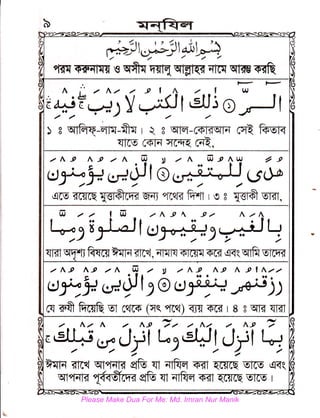 ৯ মনযিল
بِسْمِ اللّٰهِ الرَّحْمٰنِ الرَّحِيْمِ
পরম করুনাময় ও অসীম দয়ালু আল্লাহর নামে আরম্ভ করছি
الٓمّٓ ① ذٰلِكَ الْكِتٰبُ لَا رَيْبَ ۛ فِيْهِ ۛ
১ ঃ আলিফ্-লাম-মীম। ২ ঃ আল-কোরআন সেই কিতাব
যাতে কোন সন্দেহ নেই,
هُدًى لِّلْمُتَّقِيْنَ ② الَّذِيْنَ يُؤْمِنُوْنَ
এতে রয়েছে মুত্তাকীদের জন্য পথের দিশা। ৩ ঃ মুত্তাকী তারা,
بِالْغَيْبِ وَيُقِيْمُوْنَ الصَّلٰوةَ وَمِمَّا
যারা অদৃশ্য বিষয়ে ঈমান রাখে, নামায কায়েম করে এবং আমি তাদের
رَزَقْنٰهُمْ يُنْفِقُوْنَ ③ وَالَّذِيْنَ يُؤْمِنُوْنَ
যে রুযী দিয়েছি তা থেকে (সৎ পথে) ব্যয় করে। ৪ ঃ আর যারা
بِمَآ اُنْزِلَ اِلَيْكَ وَمَآ اُنْزِلَ مِنْ قَبْلِكَ ۚ
ঈমান রাখে আপনার প্রতি যা নাযিল করা হয়েছে তাতে এবং
আপনার পূর্ববর্তীদের প্রতি যা নাযিল করা হয়েছে তাতে।
Please Make Dua For Me. Md. Imran Nur Manik